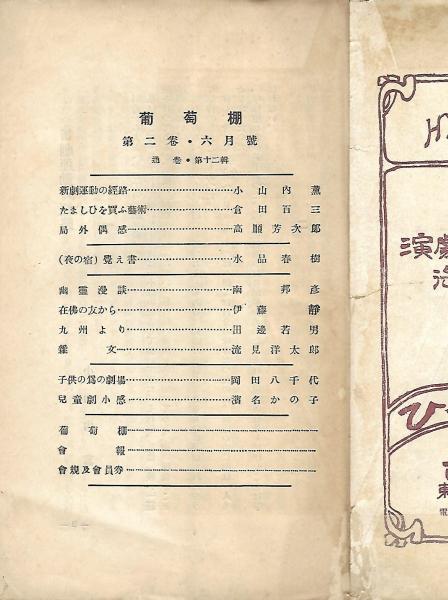 葡萄棚
第二卷・六月號
通卷・第十二輯
新劇運動の經路 小山內薰
たましひを買ふ藝術 倉田百三
局外偶感 高順芳次郎
(夜の宿)覺え書 水品春樹
幽靈漫談 南邦彥
在佛の友から 伊藤靜
九州より 田邊若男
雜文 流見洋太郎
子供の爲の劇場 岡田八千代
兒童劇小感 濱名かの子
葡萄棚
會報
會規及會員券
演
ひ